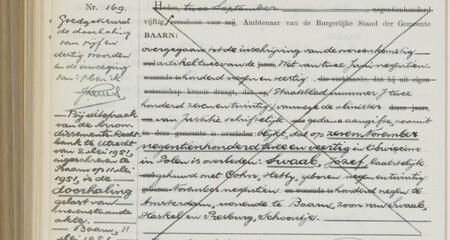 Nr. 169.
Goedgekeurd
de doorhaling
van vijf en
dertig woorden
en de invoeging
van
Bij uitspraak
van de Arron-
dissements Recht-
bank te Utrecht
van 2 mei 1951,
ingeschreven te
Baarn op 11 mei
1951, is de
doorhaling
gelast van
nevenstaande
akte.
Baarn, 11
mei 1951.
Heden, twee September negentienhonderd
vijftig verscheen voor mij, Ambtenaar van de Burgerlijke Stand der Gemeente
BAARN:
overgegaan tot de inschrijving van de overeenkomstig
oud artikel twee van de Wet van twee Juni negentien
honderd negen en veertig, die verklaarde, dat hij uit eigen
wetenschap kennis draagt, dat op Staatsblad nummer J twee
honderd zeven en twintig, vanwege de Minister dezes jaars,
van Justitie schriftelijk gedane aangifte, waaruit
in deze gemeente is overleden: blijkt, dat op zeven November
negentienhonderd twee en veertig in Oswiecim
in Polen is overleden: Swaab, Jozef, laatstelijk
gehuwd met Cohn, Hetty, geboren negen en twintig
November negentien honderd negen te
Amsterdam, wonende te Baarn, zoon van Swaab,
Hartog en Presburg, Schoontje.